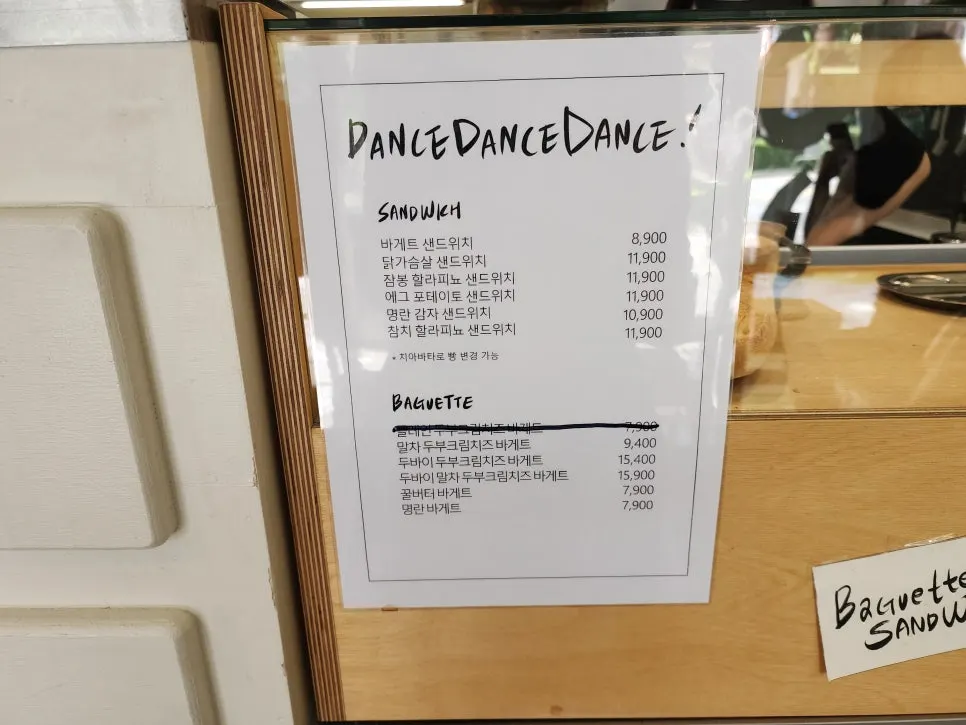 DANCEDANCEDANCE!
SANDWICH
바게트 샌드위치 8,900
닭가슴살 샌드위치 11,900
잠봉 할라피뇨 샌드위치 11,900
에그 포테이토 샌드위치 11,900
명란 감자 샌드위치 10,900
참치 할라피뇨 샌드위치 11,900
* 치아바타로 빵 변경 가능
BAGUETTE
플레인 두부크림치즈 바게트 7,900
말차 두부크림치즈 바게트 9,400
두바이 두부크림치즈 바게트 15,400
두바이 말차 두부크림치즈 바게트 15,900
꿀버터 바게트 7,900
명란 바게트 7,900
Baguette
SANDW